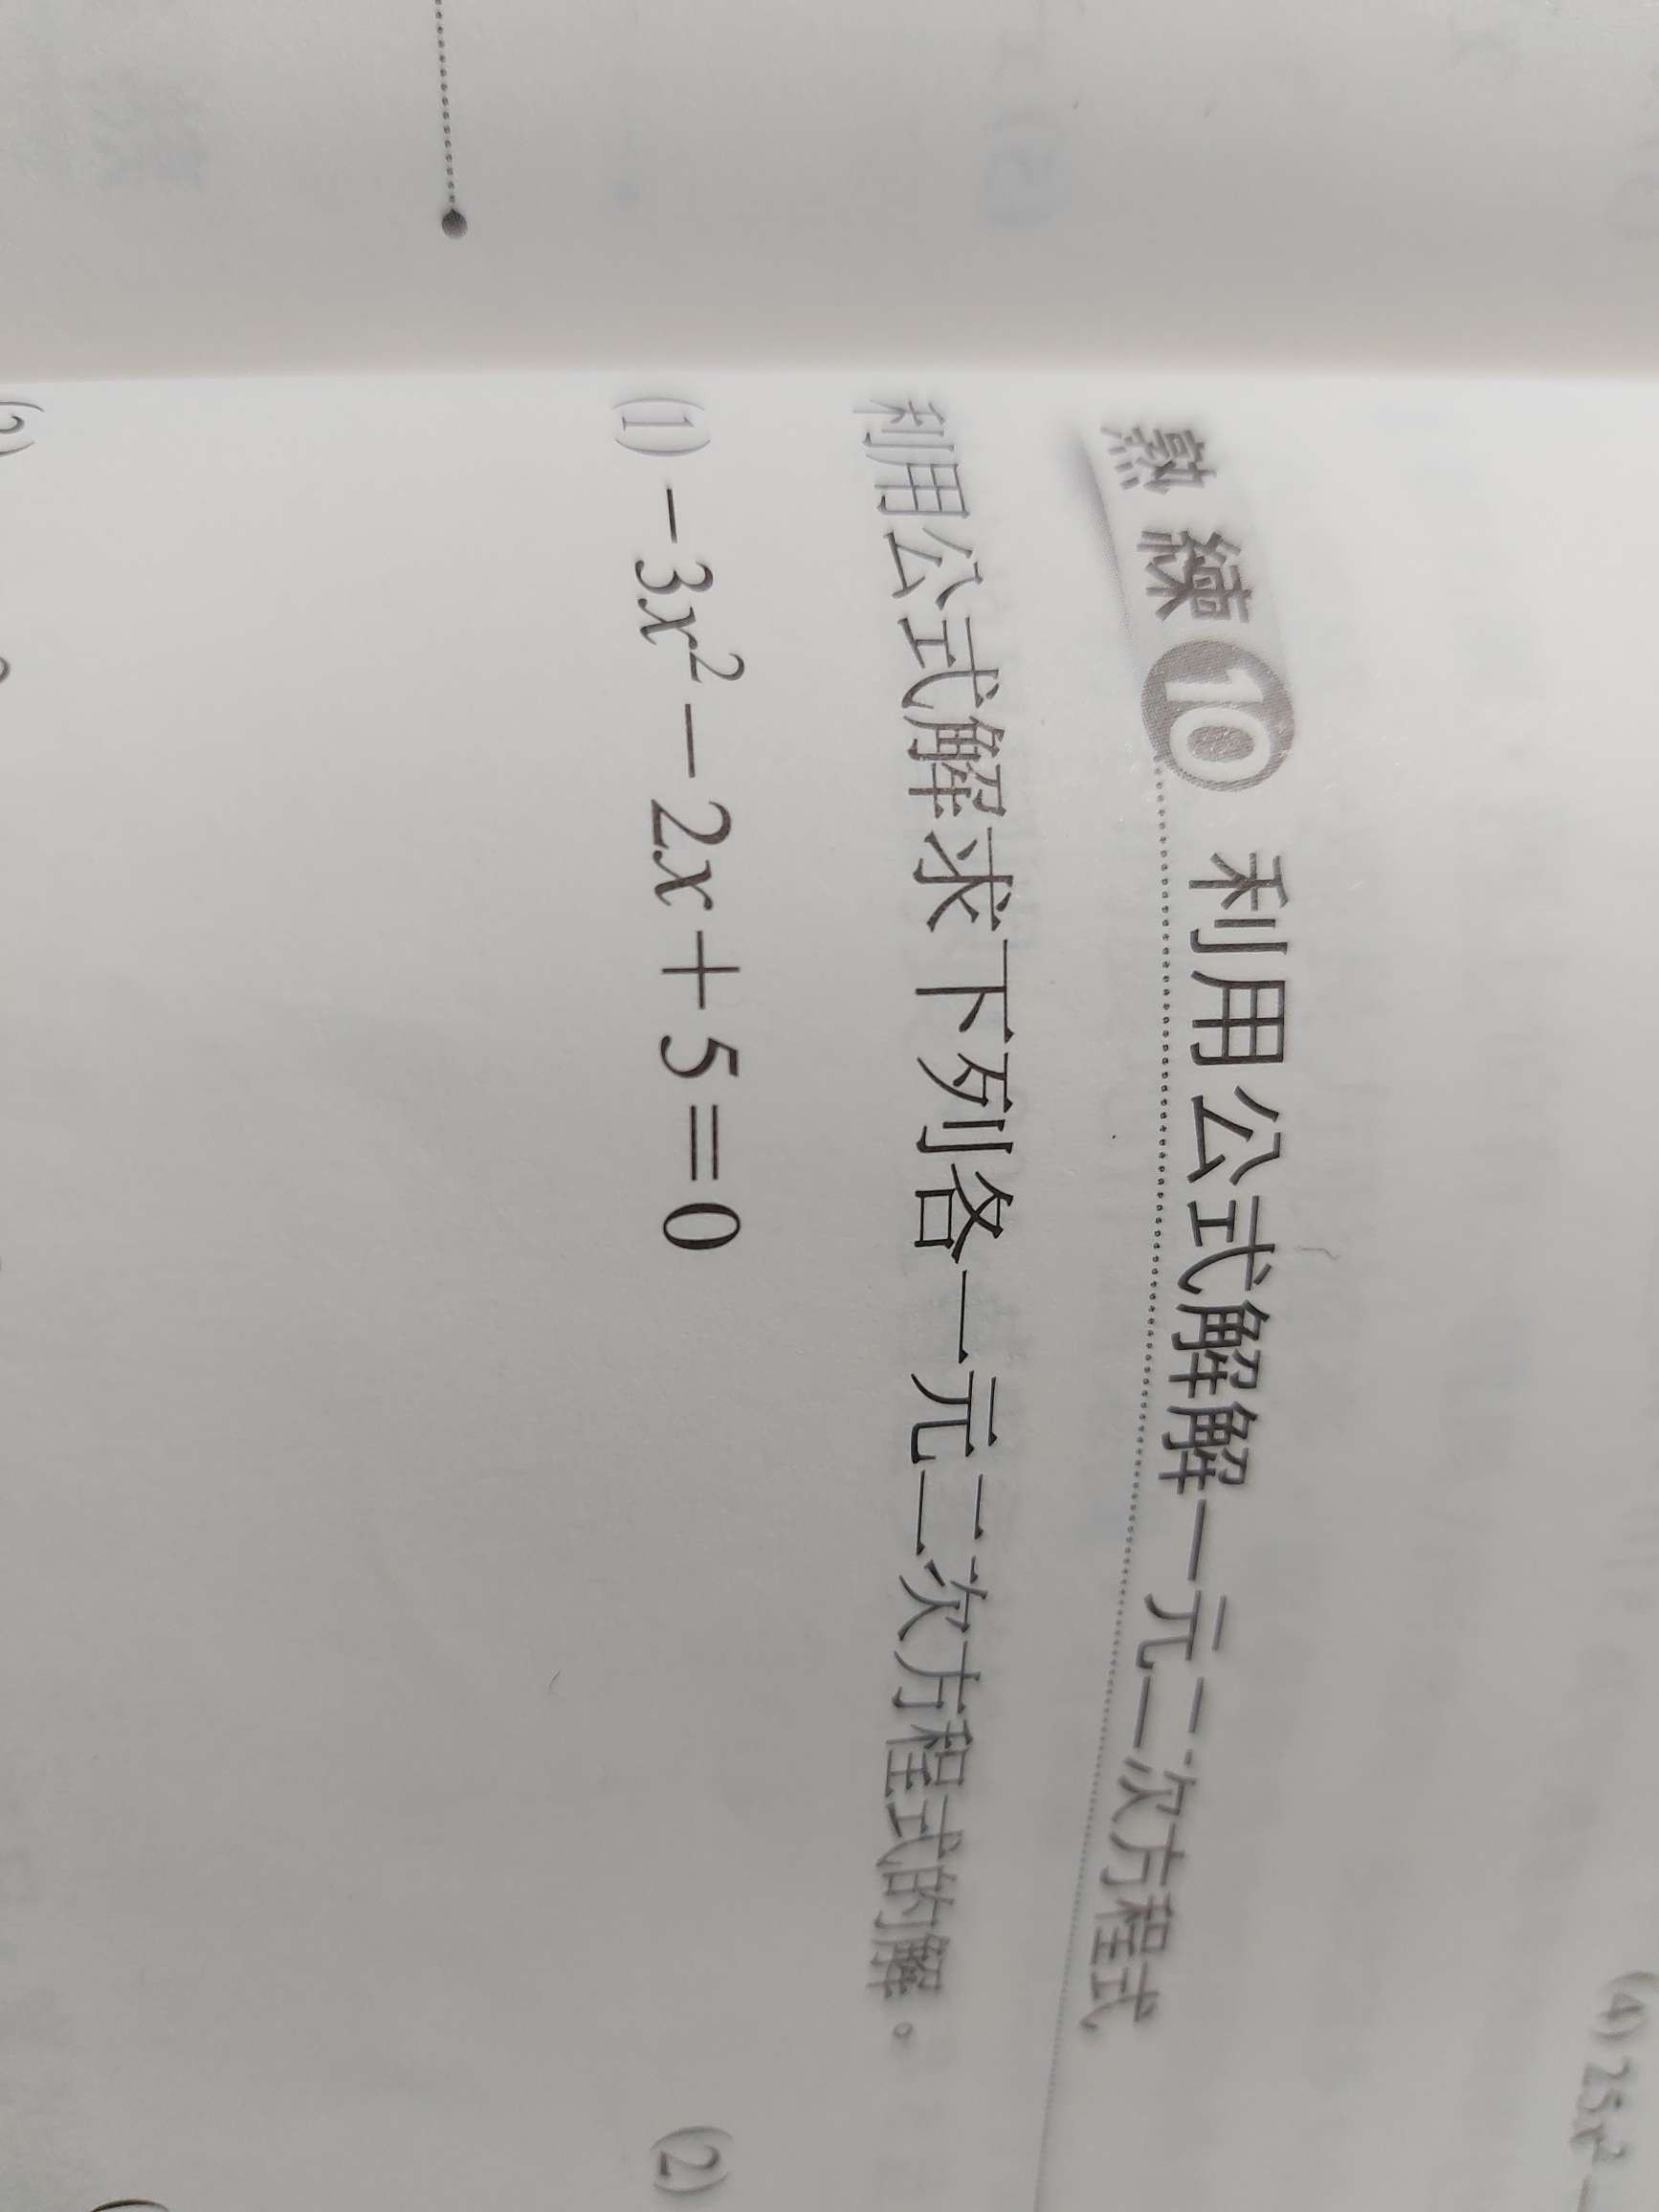 (4) 25x²
熟練 10 利用公式解解一元二次方程式
利用公式解求下列各一元二次方程式的解。
(1) －3x²－2x＋5＝0
(2)